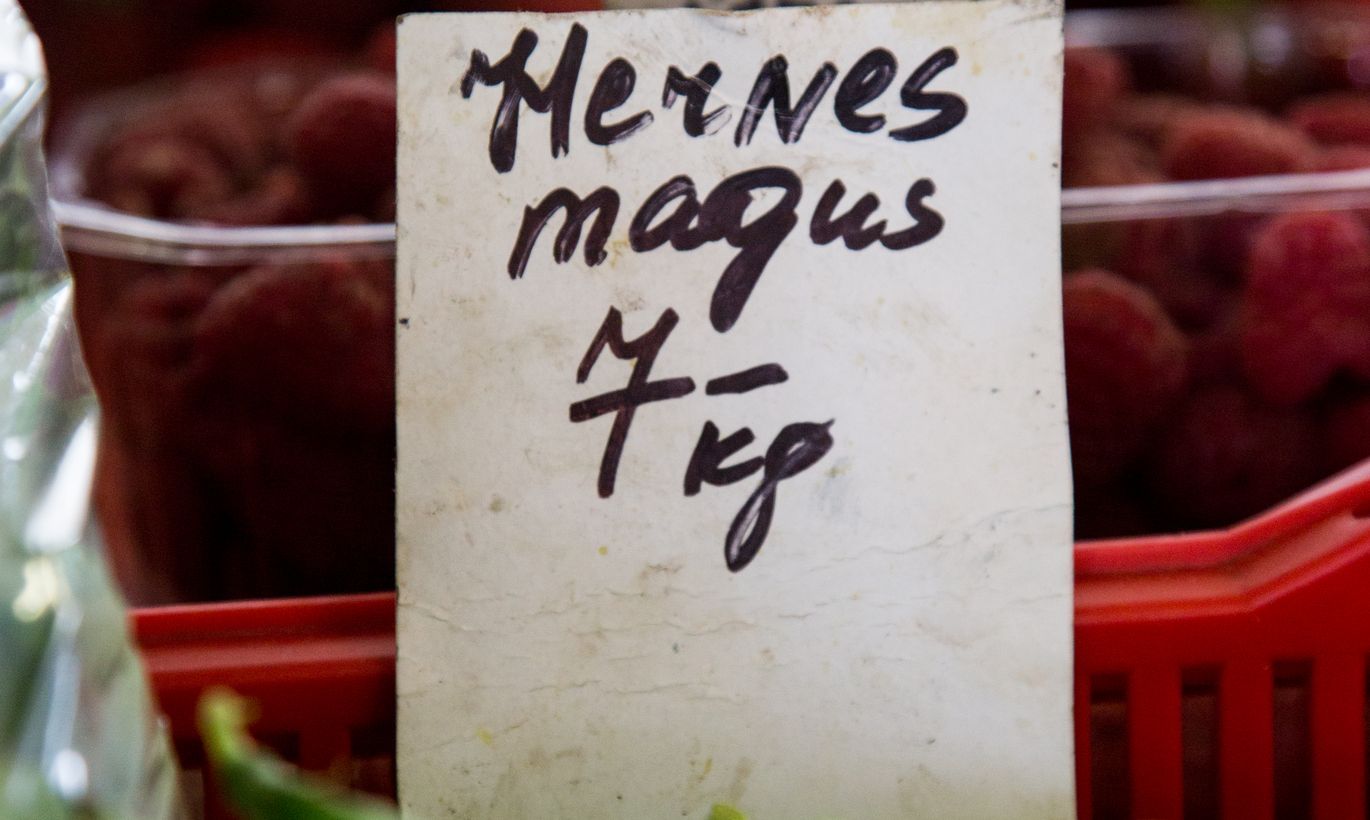 Hernes
magus
7 -
kg